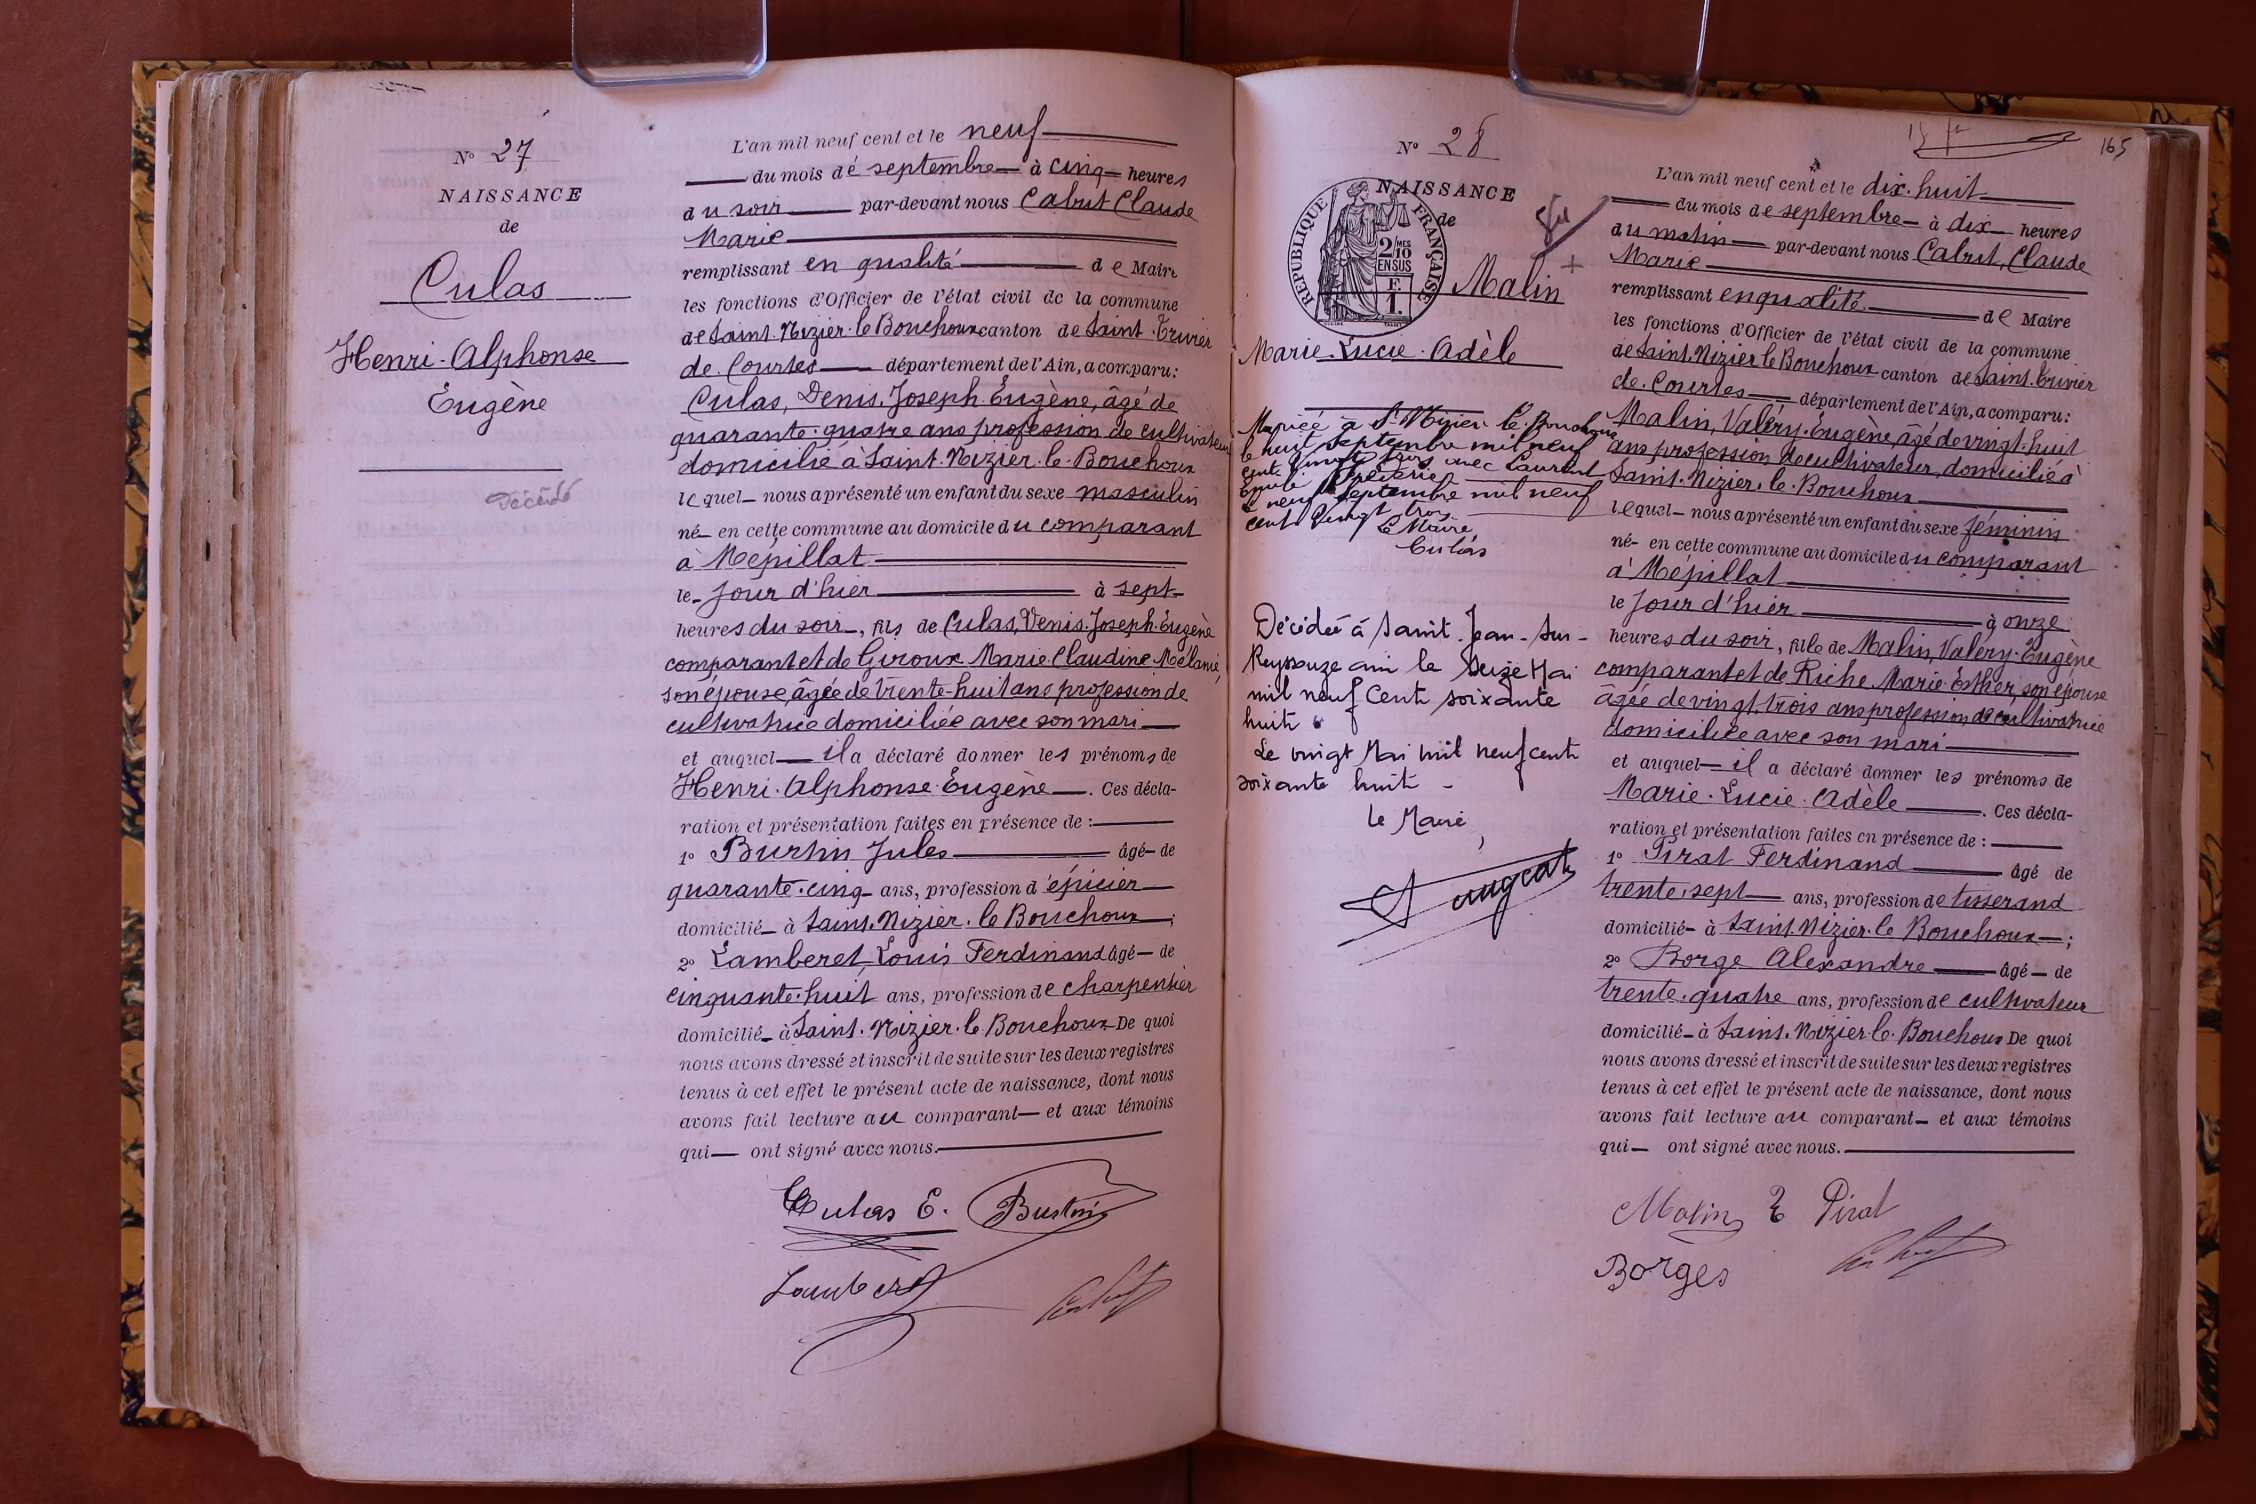 N° 27
NAISSANCE
de
Culas
Henri-Alphonse
Eugène
Décédé
L'an mil neuf cent et le neuf
du mois de septembre à cinq heures
du soir par-devant nous Cabut Claude
Marie
remplissant en qualité de Maire
les fonctions d'Officier de l'état civil de la commune
de Saint-Nizier-le-Bouchoux canton de Saint-Trivier
de-Courtes département de l'Ain, a comparu:
Culas, Denis-Joseph-Eugène, âgé de
quarante-quatre ans profession de cultivateur
domicilié à Saint-Nizier-le-Bouchoux
lequel nous a présenté un enfant du sexe masculin
né en cette commune au domicile du comparant
à Mépillat
le Jour d'hier à sept
heures du soir, fils de Culas, Denis-Joseph-Eugène
comparant et de Giroux Marie Claudine Mélanie,
son épouse, âgée de trente-huit ans profession de
cultivatrice domiciliée avec son mari
et auquel il a déclaré donner les prénoms de
Henri-Alphonse-Eugène. Ces décla-
ration et présentation faites en présence de :
1° Burtin Jules âgé de
quarante-cinq ans, profession d'épicier
domicilié à Saint-Nizier-le-Bouchoux ;
2° Lamberet, Louis Ferdinand âgé de
cinquante-huit ans, profession de charpentier
domicilié à Saint-Nizier-le-Bouchoux De quoi
nous avons dressé et inscrit de suite sur les deux registres
tenus à cet effet le présent acte de naissance, dont nous
avons fait lecture au comparant et aux témoins
qui ont signé avec nous.
Culas E. Burtin
Lamberet
Cabut
165
N° 28
NAISSANCE
de
RÉPUBLIQUE FRANÇAISE
2/10 MES
EN SUS
F.
1.
Malin
Marie-Lucie-Adèle
Mariée à St Nizier-le-Bouchoux
le huit septembre mil neuf
cent vingt trois avec Laurent
Emile
Le neuf septembre mil neuf
cent vingt trois
Le Maire
Culas
Décédée à Saint-Jean-sur-
Reyssouze ain le seize Mai
mil neuf cent soixante
huit.
Le vingt Mai mil neuf cent
soixante huit -
Le Maire,
L'an mil neuf cent et le dix-huit
du mois de septembre à dix heures
du matin par-devant nous Cabut, Claude
Marie
remplissant en qualité de Maire
les fonctions d'Officier de l'état civil de la commune
de Saint-Nizier le Bouchoux canton de Saint-Trivier
de-Courtes département de l'Ain, a comparu:
Malin, Valéry-Eugène, âgé de vingt-huit
ans profession de cultivateur, domicilié à
Saint-Nizier-le-Bouchoux
lequel nous a présenté un enfant du sexe féminin
né en cette commune au domicile du comparant
à Mépillat
le Jour d'hier à onze
heures du soir, fille de Malin, Valéry-Eugène
comparant et de Riche Marie-Esther, son épouse
âgée de vingt-trois ans profession de cultivatrice
domiciliée avec son mari
et auquel il a déclaré donner les prénoms de
Marie-Lucie-Adèle. Ces décla-
ration et présentation faites en présence de :
1° Pirat Ferdinand âgé de
trente-sept ans, profession de tisserand
domicilié à Saint-Nizier-le Bouchoux ;
2° Borge Alexandre âgé de
trente-quatre ans, profession de cultivateur
domicilié à Saint-Nizier-le-Bouchoux De quoi
nous avons dressé et inscrit de suite sur les deux registres
tenus à cet effet le présent acte de naissance, dont nous
avons fait lecture au comparant et aux témoins
qui ont signé avec nous.
Malin E Pirat
Borges
Cabut